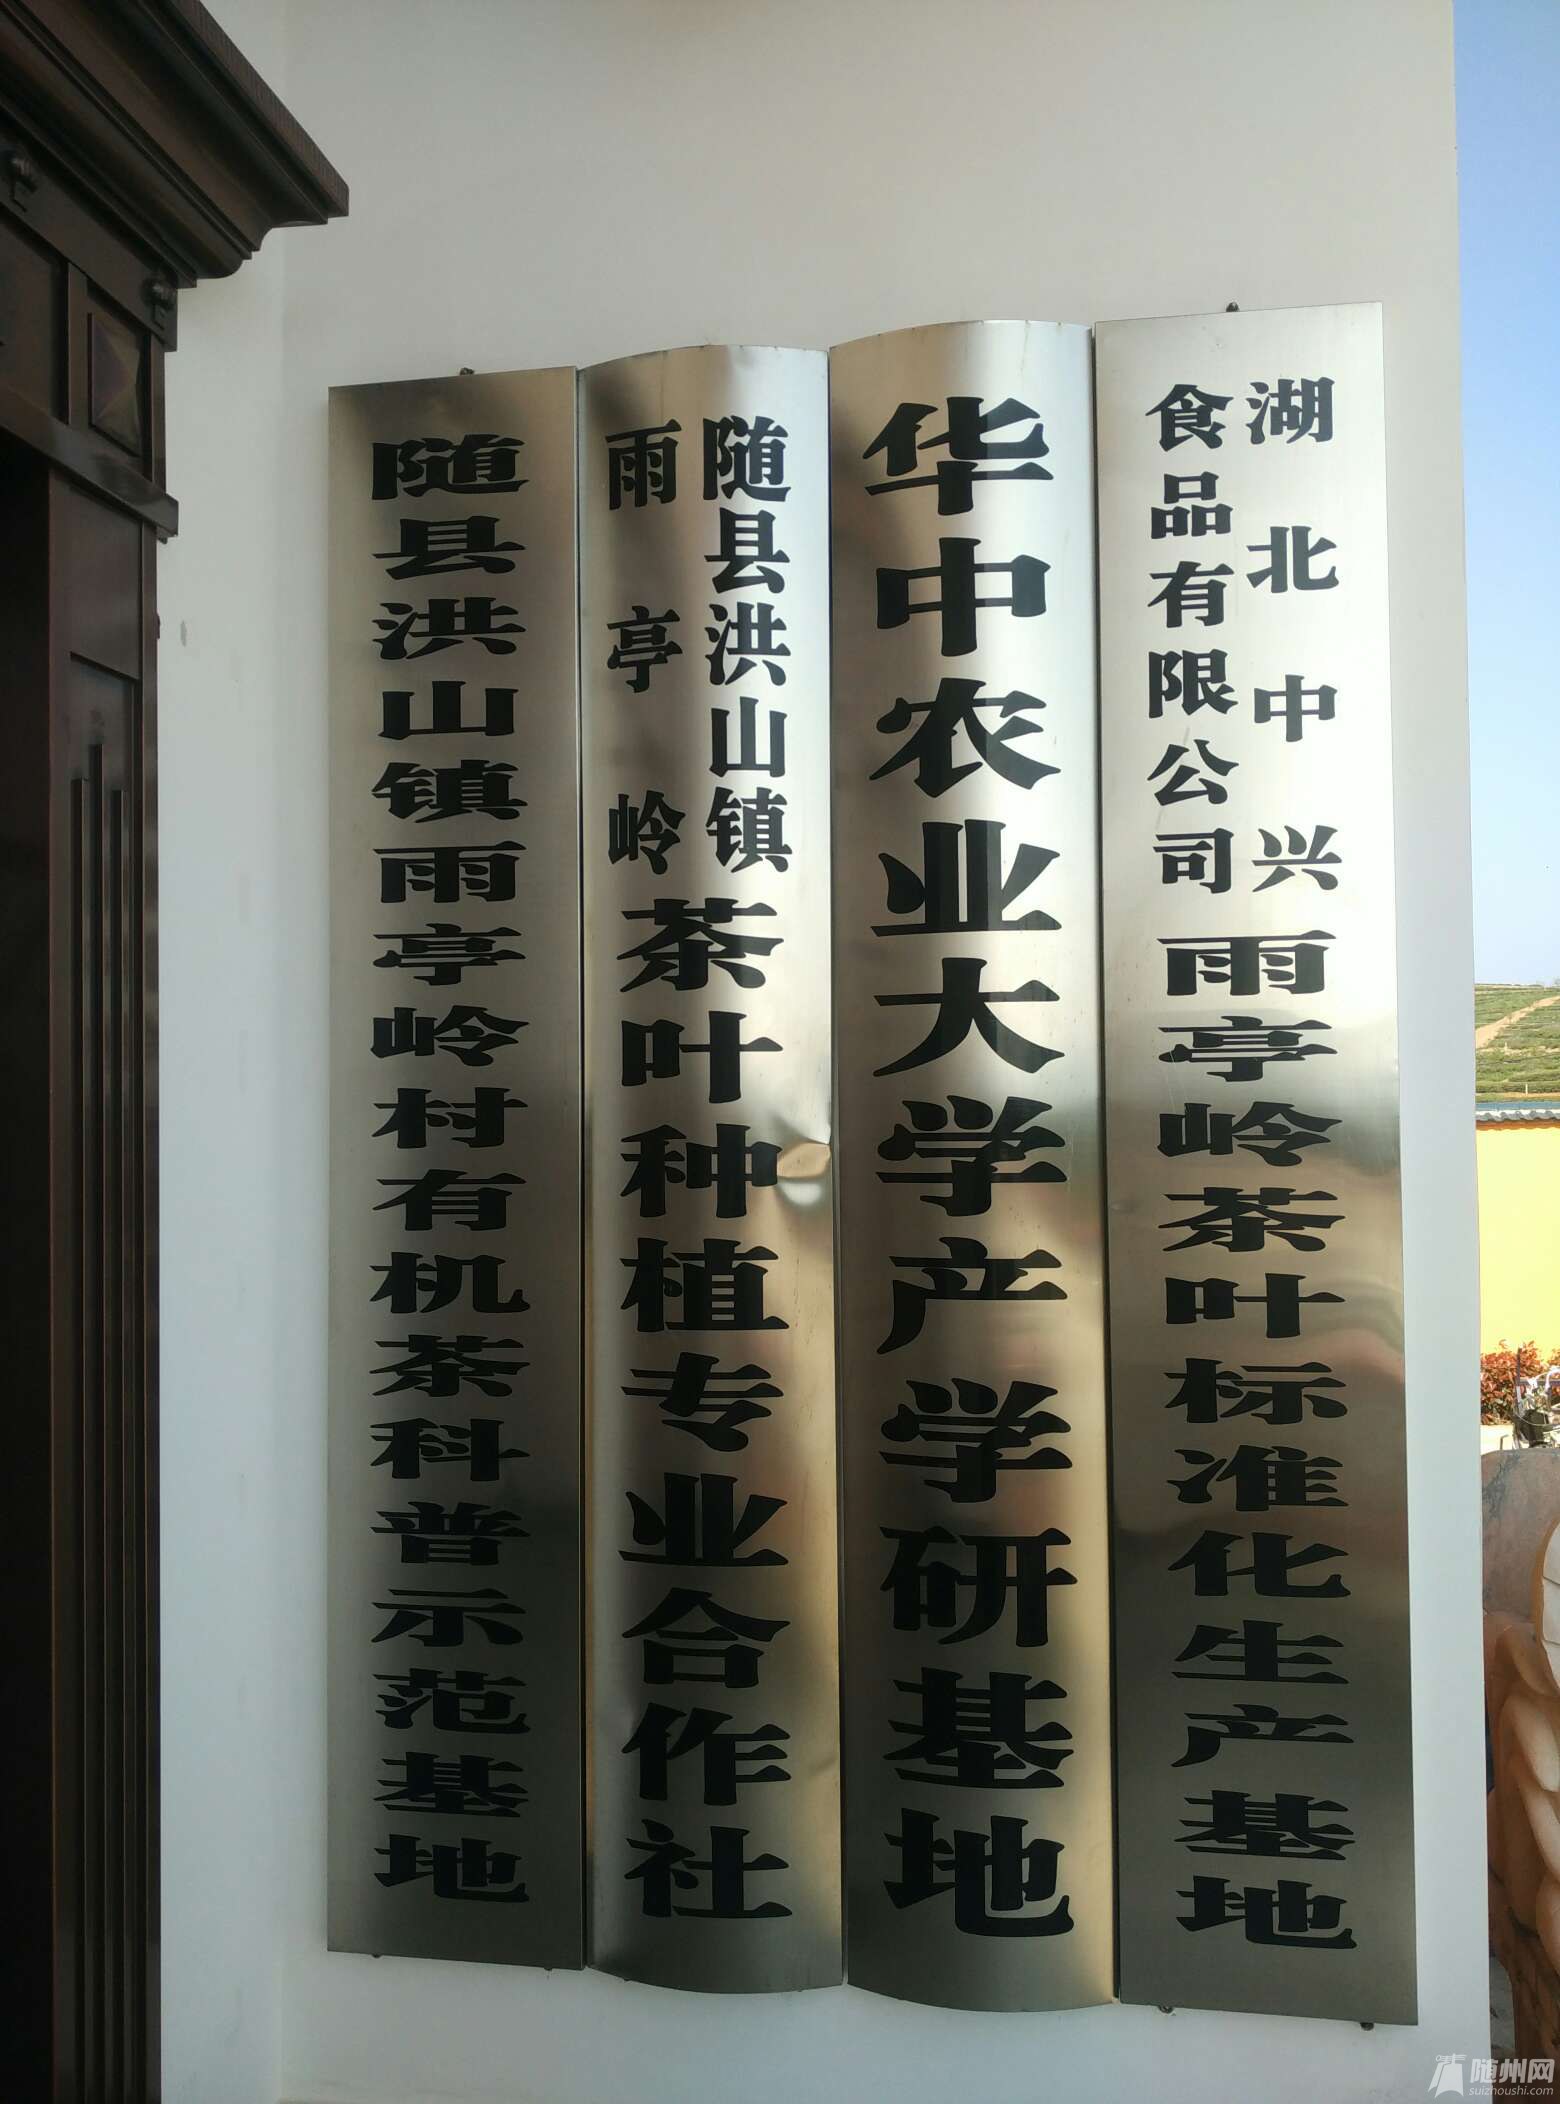 随县洪山镇雨亭岭村有机茶科普示范基地
随县洪山镇
雨亭岭
茶叶种植专业合作社
华中农业大学产学研基地
湖北中兴
食品有限公司
雨亭岭茶叶标准化生产基地
随州网
suizhoushi.com